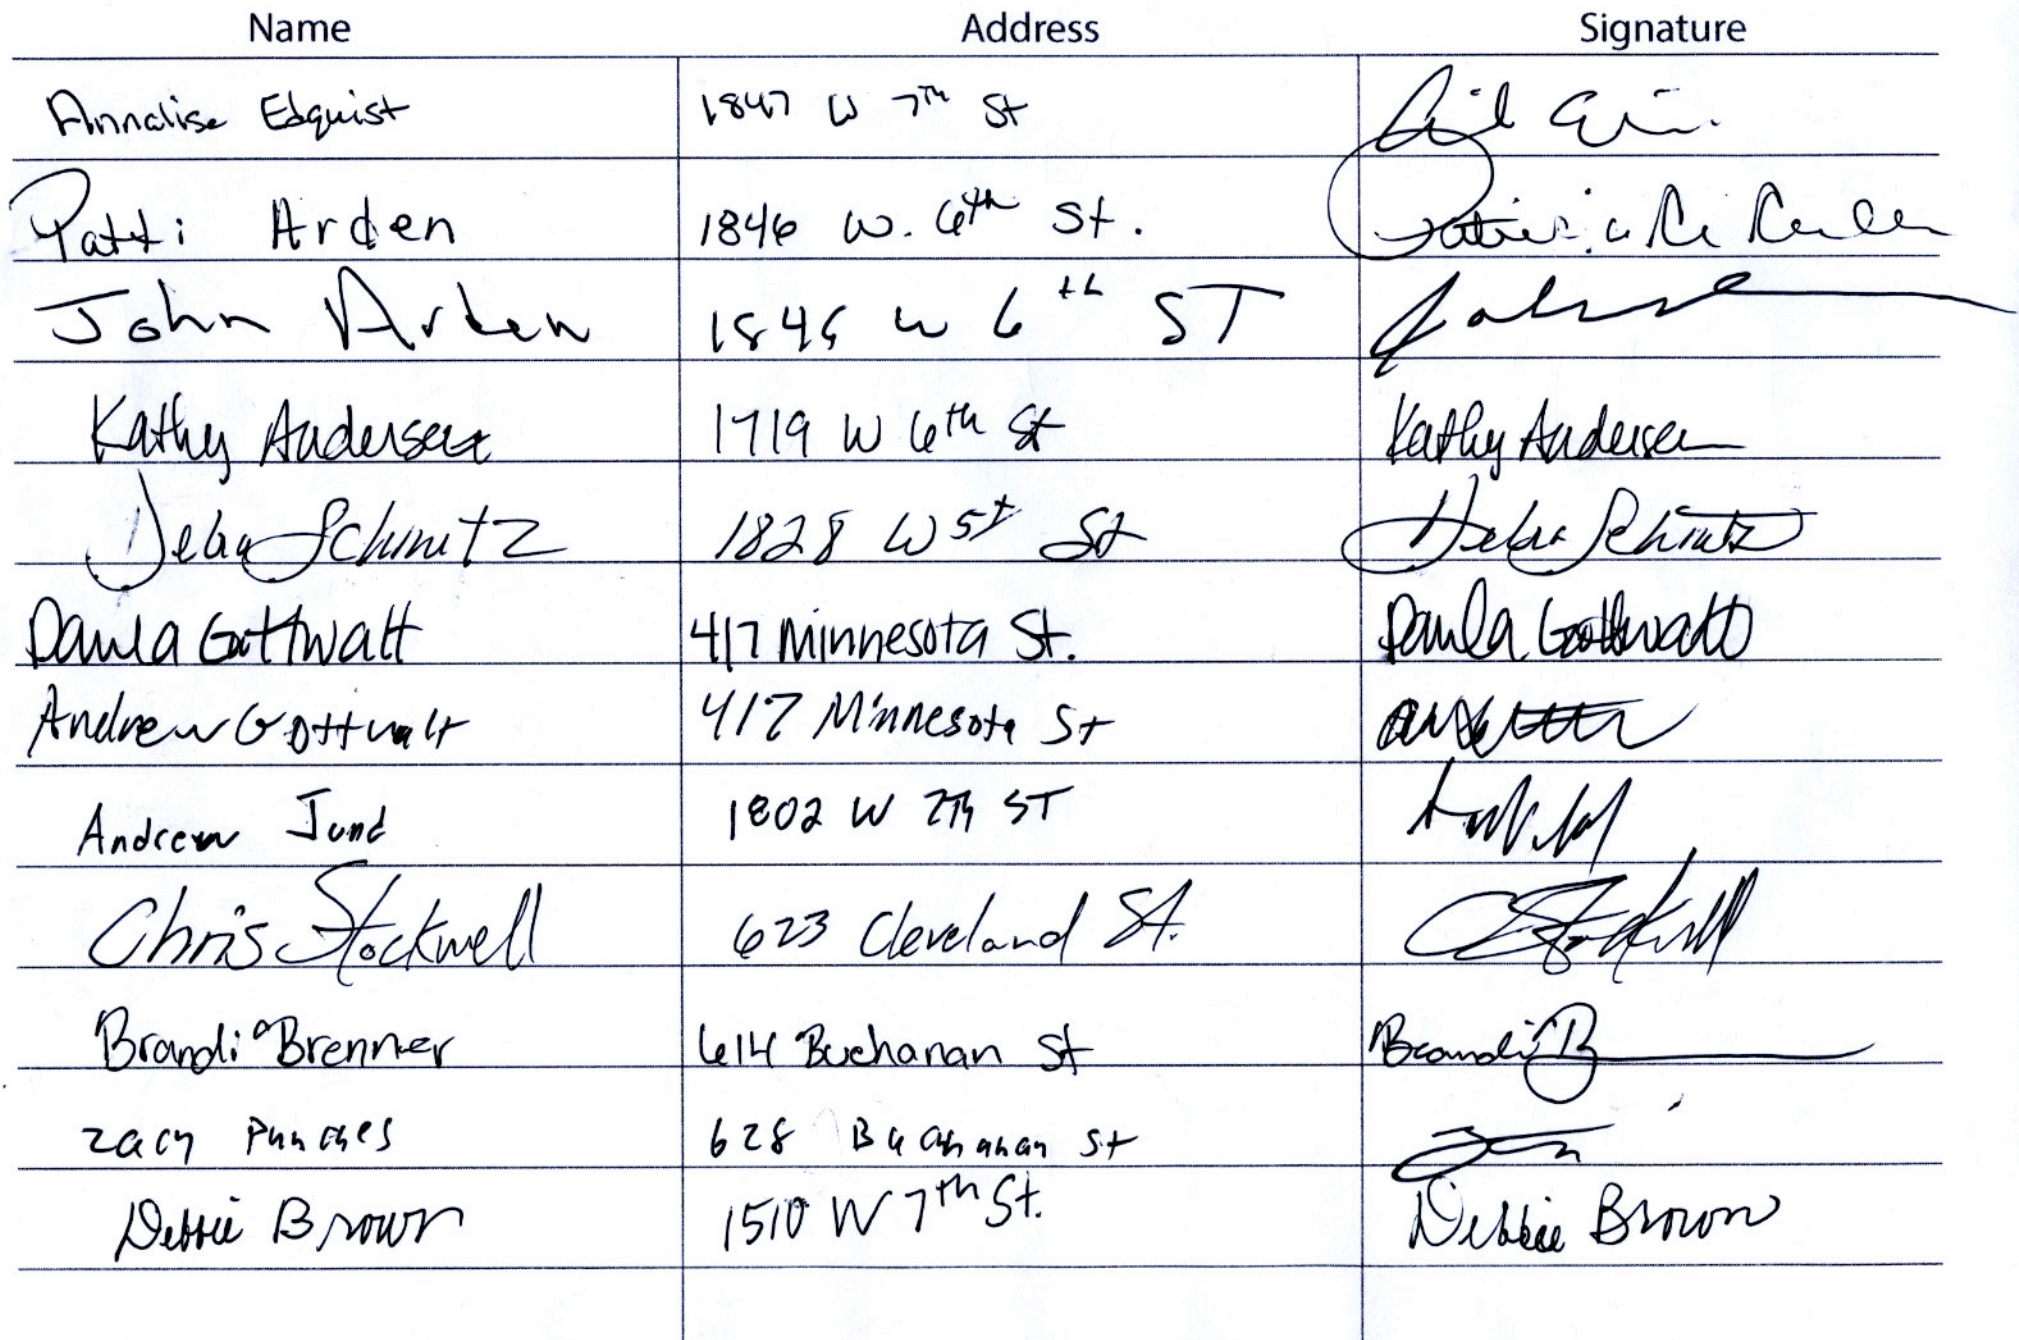 Name Address Signature
Annalise Edquist 1847 W 7th St
Patti Arden 1846 W. 6th St.
John Arden 1846 W 6th ST
Kathy Andersen 1719 W 6th St Kathy Andersen
Debra Schmitz 1828 W 5th St Debra Schmitz
Paula Gottwalt 417 Minnesota St. Paula Gottwalt
Andrew Gottwalt 417 Minnesota St
Andrew Jund 1802 W 7th ST
Chris Stockwell 623 Cleveland St. C Stockwell
Brandi Brenner 614 Buchanan St Brandi B
Zach 628 Buchanan St
Debbie Brown 1510 W 7th St. Debbie Brown